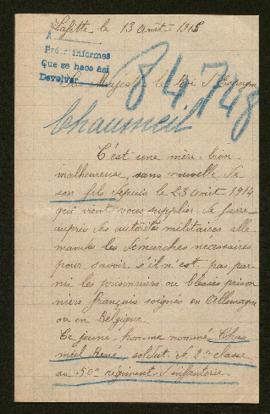 Lafette, le 13 août 1915
A
Pedir informes
Que se haga así
Devolver
Sa Majesté le Roi d'Espagne
84748
Chaumeil
C'est une mère bien
malheureuse, sans nouvelle de
son fils depuis le 23 août 1914
qui vient vous supplier de faire
auprès des autorités militaires alle-
mandes les démarches nécessaires
pour savoir s'il n'est pas par-
mi les prisonniers ou blessés prison
niers français soignés en Allemagne
ou en Belgique.
Ce jeune homme nommé Chau
meil René, soldat de 2me classe
au 50e régiment d'infanterie